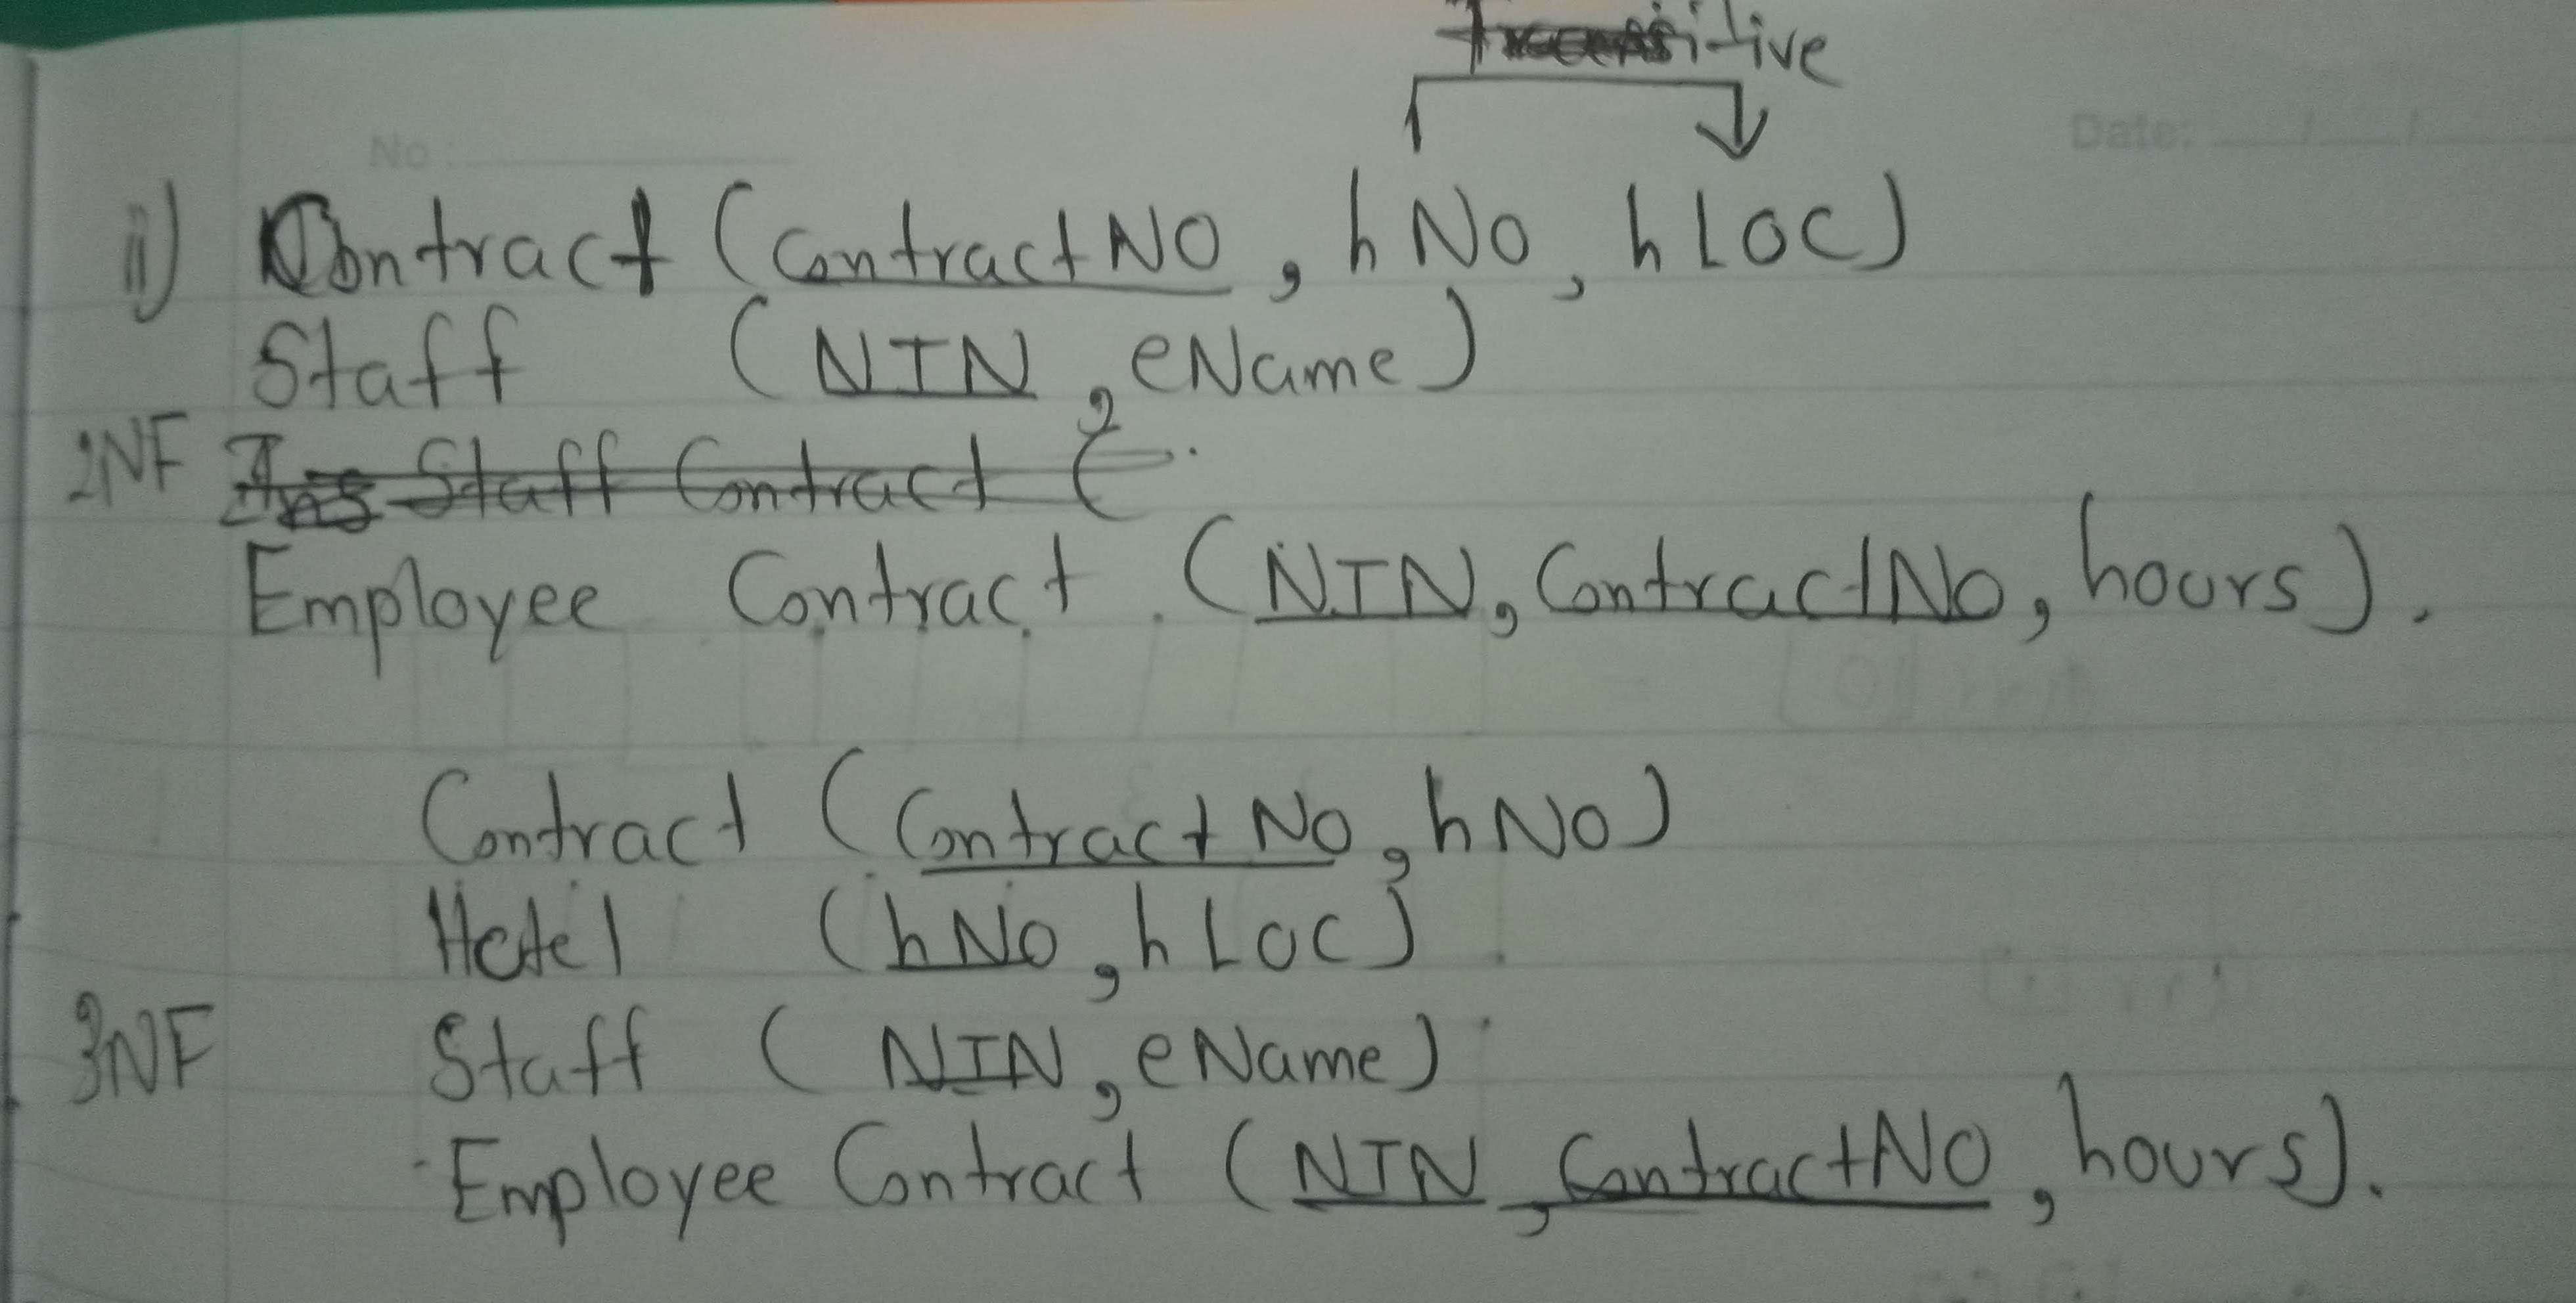 Transitive
No : Date: / /
ii) Contract (ContractNO, hNo, hLoc)
Staff (NIN, eName)
2NF Staff Contract (
Employee Contract (NIN, ContractNo, hours).
Contract (Contract No, hNo)
Hotel (hNo, hLoc)
3NF Staff (NIN, eName)
Employee Contract (NIN, ContractNO, hours).